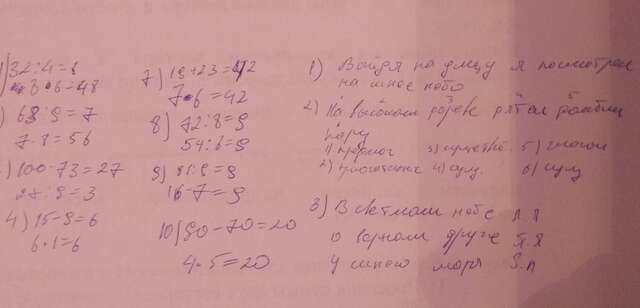 1) 32:4=8
8•6=48
) 63:9=7
7•8=56
) 100-73=27
27:9=3
4) 15-9=6
6•1=6
7) 19+23=42
7•6=42
8) 72:8=9
54:6=9
9) 81:9=9
16-7=9
10) 90-70=20
4•5=20
1) Выйдя на улицу я посмотрел
на синее небо
2) На высоком дереве дятел долбил
кору
1) предлог 3) существ. 5) глагол
2) прилагат. 4) сущ. 6) сущ
3) В светлом небе П.п
о верном друге П.п
у синего моря Р.п